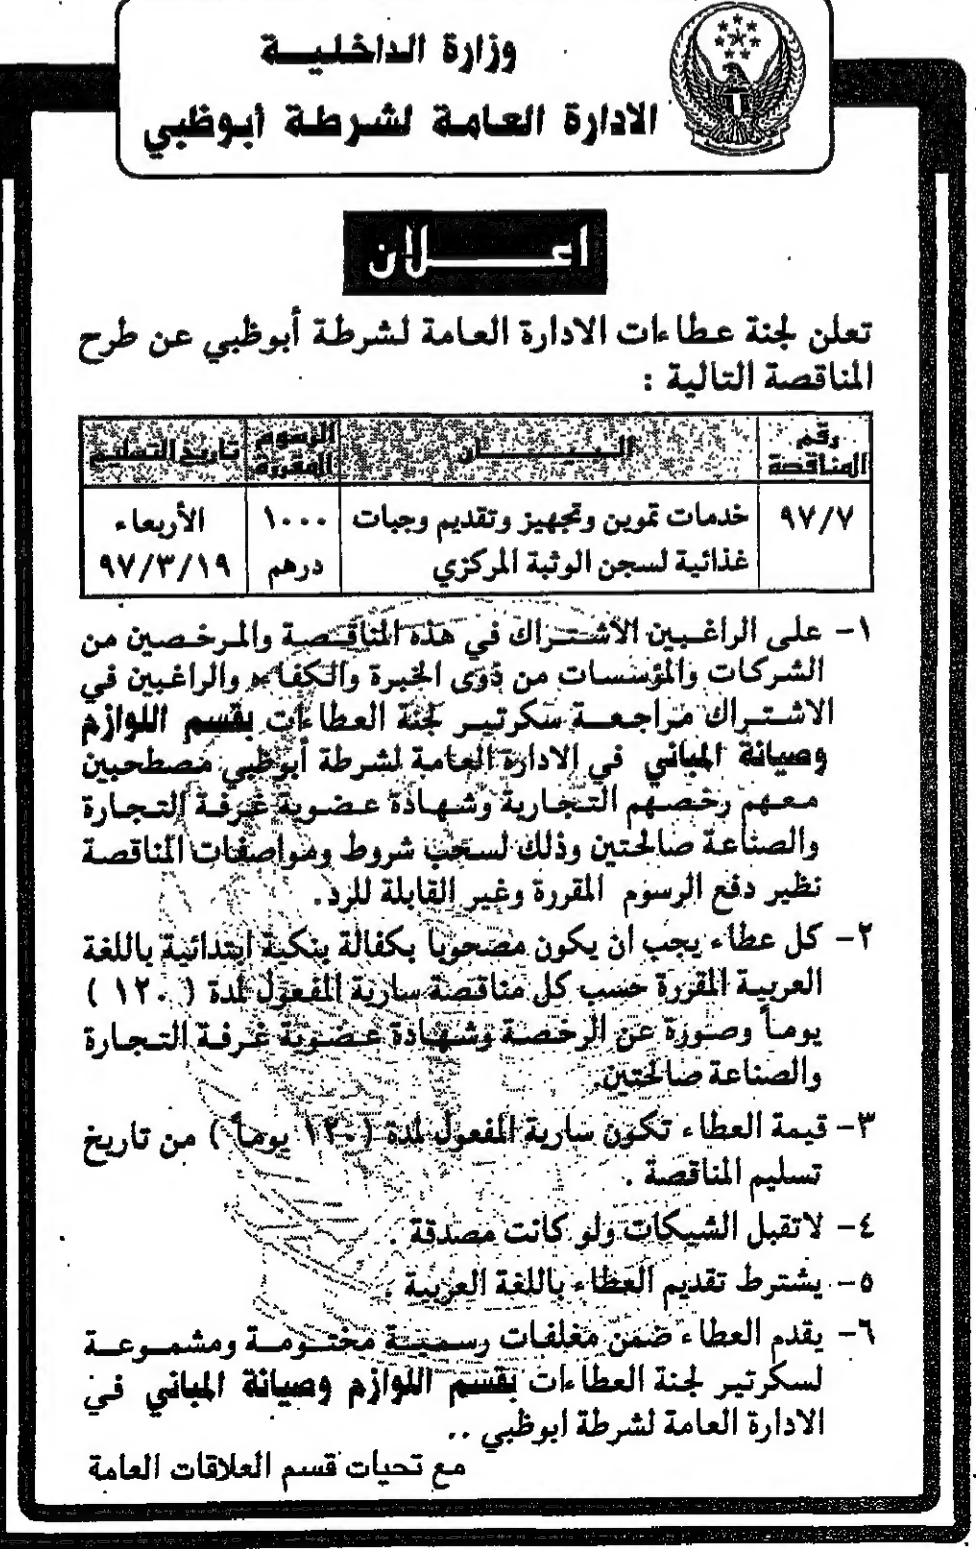 وزارة الداخليـــة
الادارة العامة لشرطة أبوظبي
اعـــــلان
تعلن لجنة عطاءات الادارة العامة لشرطة أبوظبي عن طرح
المناقصة التالية :
رقم المناقصة | البـيـــــــان | الرسوم المقررة | تاريخ التسليم
٩٧/٧ | خدمات تموين وتجهيز وتقديم وجبات | ١٠٠٠ | الأربعاء
غذائية لسجن الوثبة المركزي | درهم | ٩٧/٣/١٩
١- على الراغبين الاشتراك في هذه المناقصة والمرخصين من
الشركات والمؤسسات من ذوى الخبرة والكفاءه والراغبين في
الاشتراك مراجعة سكرتير لجنة العطاءات بقسم اللوازم
وصيانة المباني في الادارة العامة لشرطة أبوظبي مصطحبين
معهم رخصهم التجارية وشهادة عضوية غرفة التجارة
والصناعة صالحتين وذلك لسحب شروط ومواصفات المناقصة
نظير دفع الرسوم المقررة وغير القابلة للرد.
٢- كل عطاء يجب ان يكون مصحوبا بكفالة بنكية ابتدائية باللغة
العربية المقررة حسب كل مناقصة سارية المفعول لمدة ( ١٢٠ )
يوماً وصورة عن الرخصة وشهادة عضوية غرفة التجارة
والصناعة صالحتين.
٣- قيمة العطاء تكون سارية المفعول لمدة (١٢٠ يوماً ) من تاريخ
تسليم المناقصة .
٤- لاتقبل الشيكات ولو كانت مصدقة .
٥- يشترط تقديم العطاء باللغة العربية .
٦- يقدم العطاء ضمن مغلفات رسمية مختومة ومشموعة
لسكرتير لجنة العطاءات بقسم اللوازم وصيانة المباني في
الادارة العامة لشرطة ابوظبي ..
مع تحيات قسم العلاقات العامة